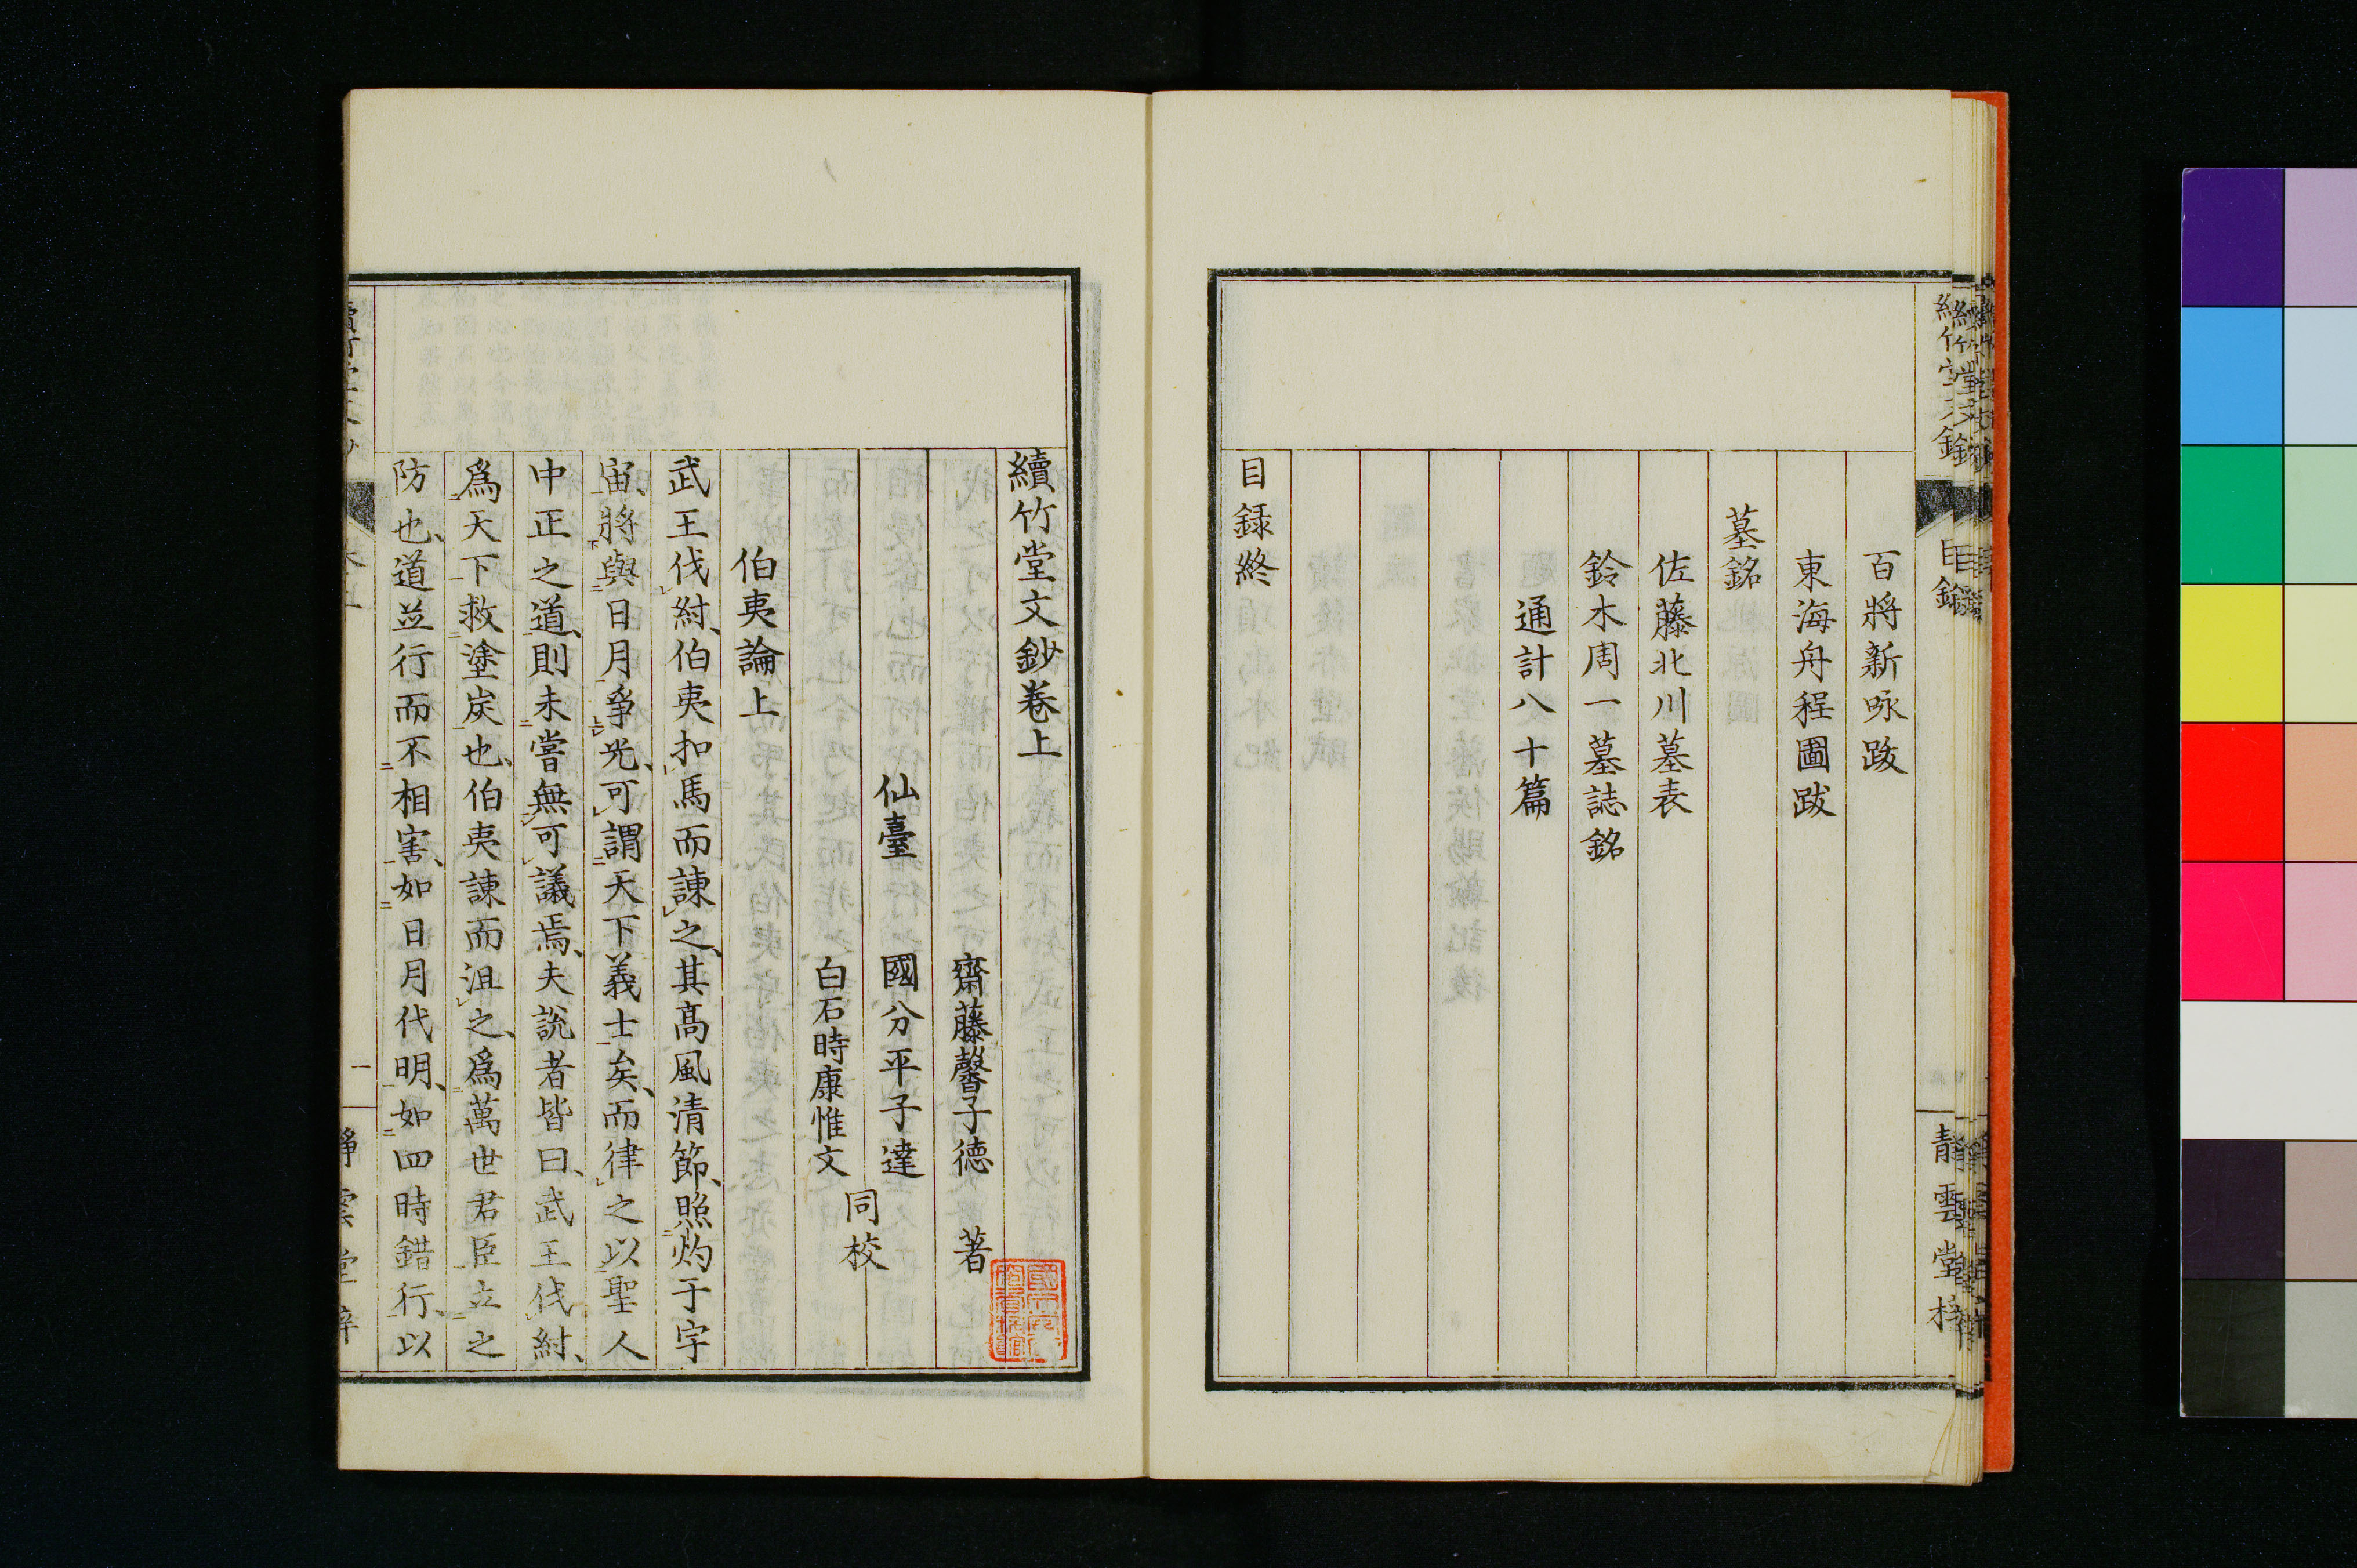 百將新咏跋
東海舟程圖跋
墓銘
佐藤北川墓表
鈴木周一墓誌銘
通計八十篇
目録終
續竹堂文鈔卷上
齋藤馨子德 著
仙臺 國分平子達
白石時康惟文
同校
伯夷論上
武王伐紂、伯夷扣馬而諫之、其高風清節、照灼于宇
宙、將與日月爭光、可謂天下義士矣、而律之以聖人
中正之道、則未嘗無可議焉、夫說者皆曰、武王伐紂、
爲天下救塗炭也、伯夷諫而沮之、爲萬世君臣立之
防也、道並行而不相害、如日月代明、如四時錯行、以